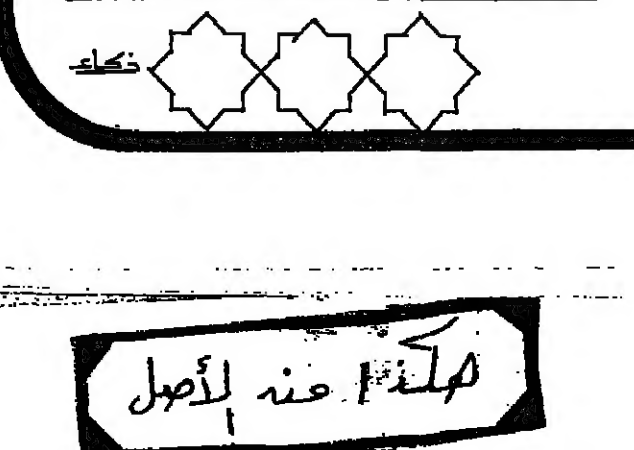 ذكاء
هكذا منه لأصل